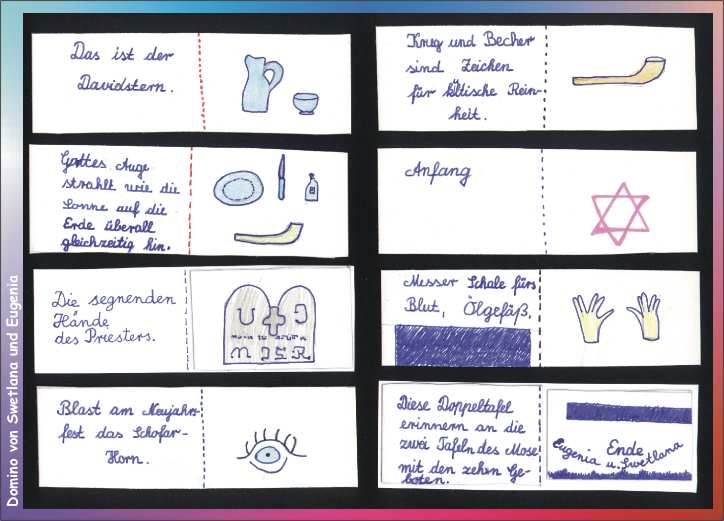 Domino von Swetlana und Eugenia
Das ist der
Davidstern.
Gottes Auge
strahlt wie die
Sonne auf die
Erde überall
gleichzeitig hin.
Die segnenden
Hände
des Priesters.
Blast am Neujahrs-
fest das Schofar-
Horn.
Krug und Becher
sind Zeichen
für kultische Rein-
heit.
Anfang
Messer Schale fürs
Blut, Ölgefäß.
Diese Doppeltafel
erinnern an die
zwei Tafeln des Mose
mit den zehen Ge-
boten.
Ende
Eugenia u. Swetlana